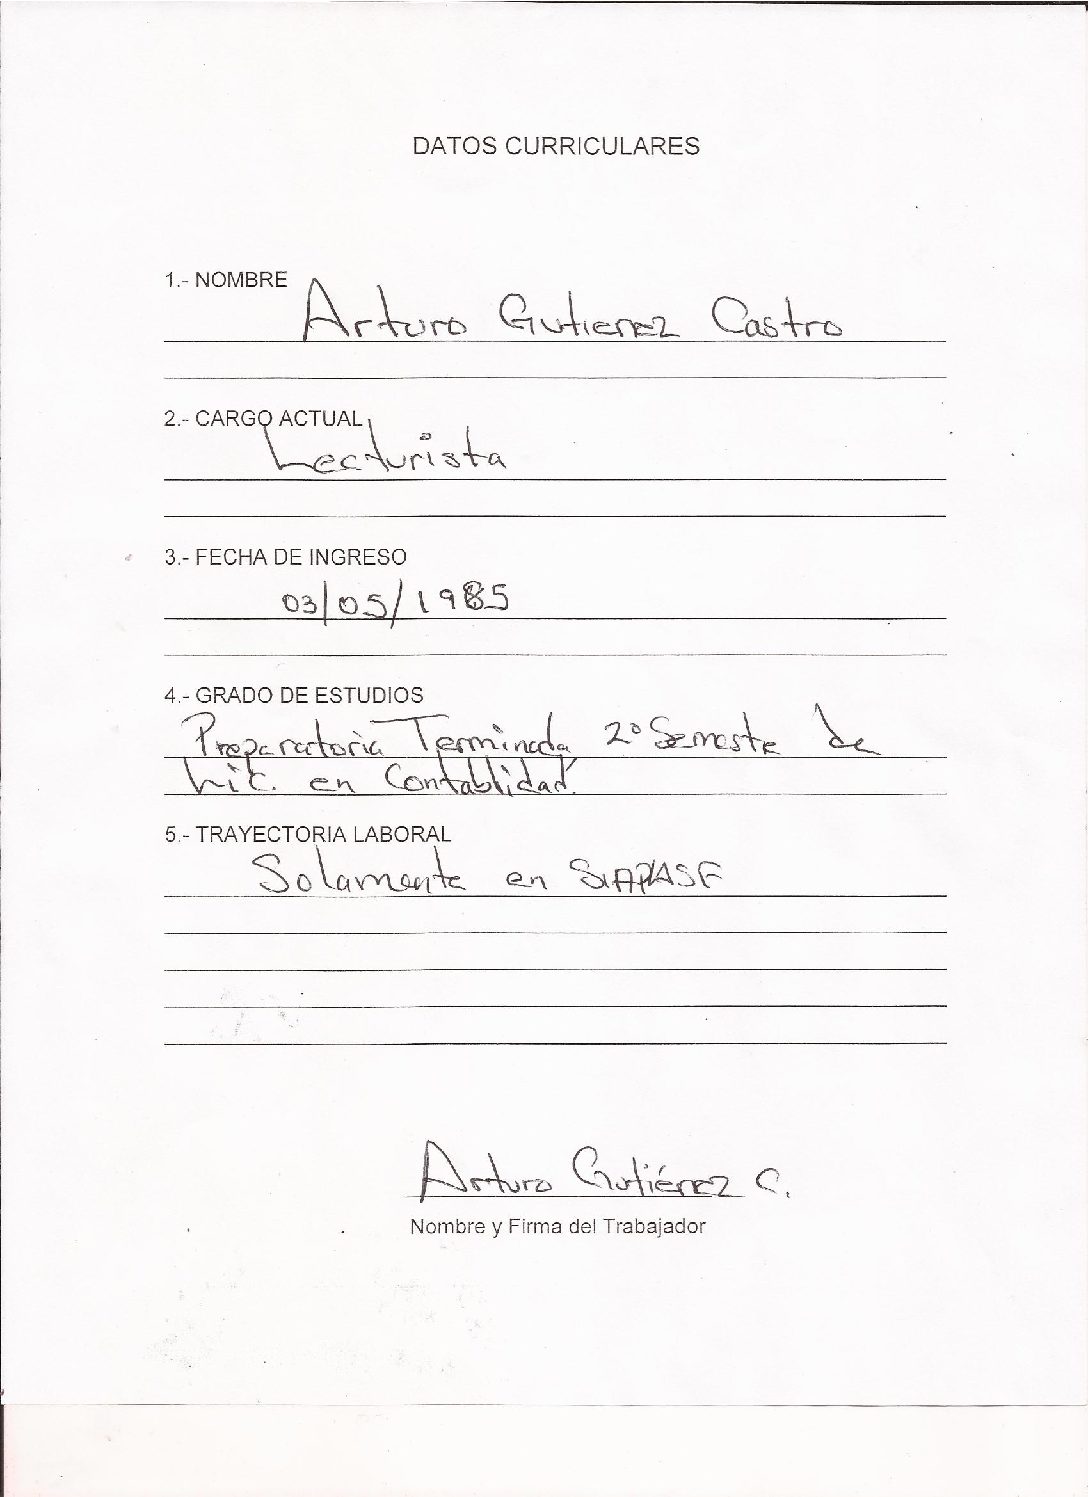 DATOS CURRICULARES
1.- NOMBRE
Arturo Gutierrez Castro
2.- CARGO ACTUAL
Lecturista
3.- FECHA DE INGRESO
03/05/1985
4.- GRADO DE ESTUDIOS
Preparatoria Terminada 2º Semestre de
Lic. en Contablidad.
5.- TRAYECTORIA LABORAL
Solamente en SIAPASF
Arturo Gutiérrez C.
Nombre y Firma del Trabajador